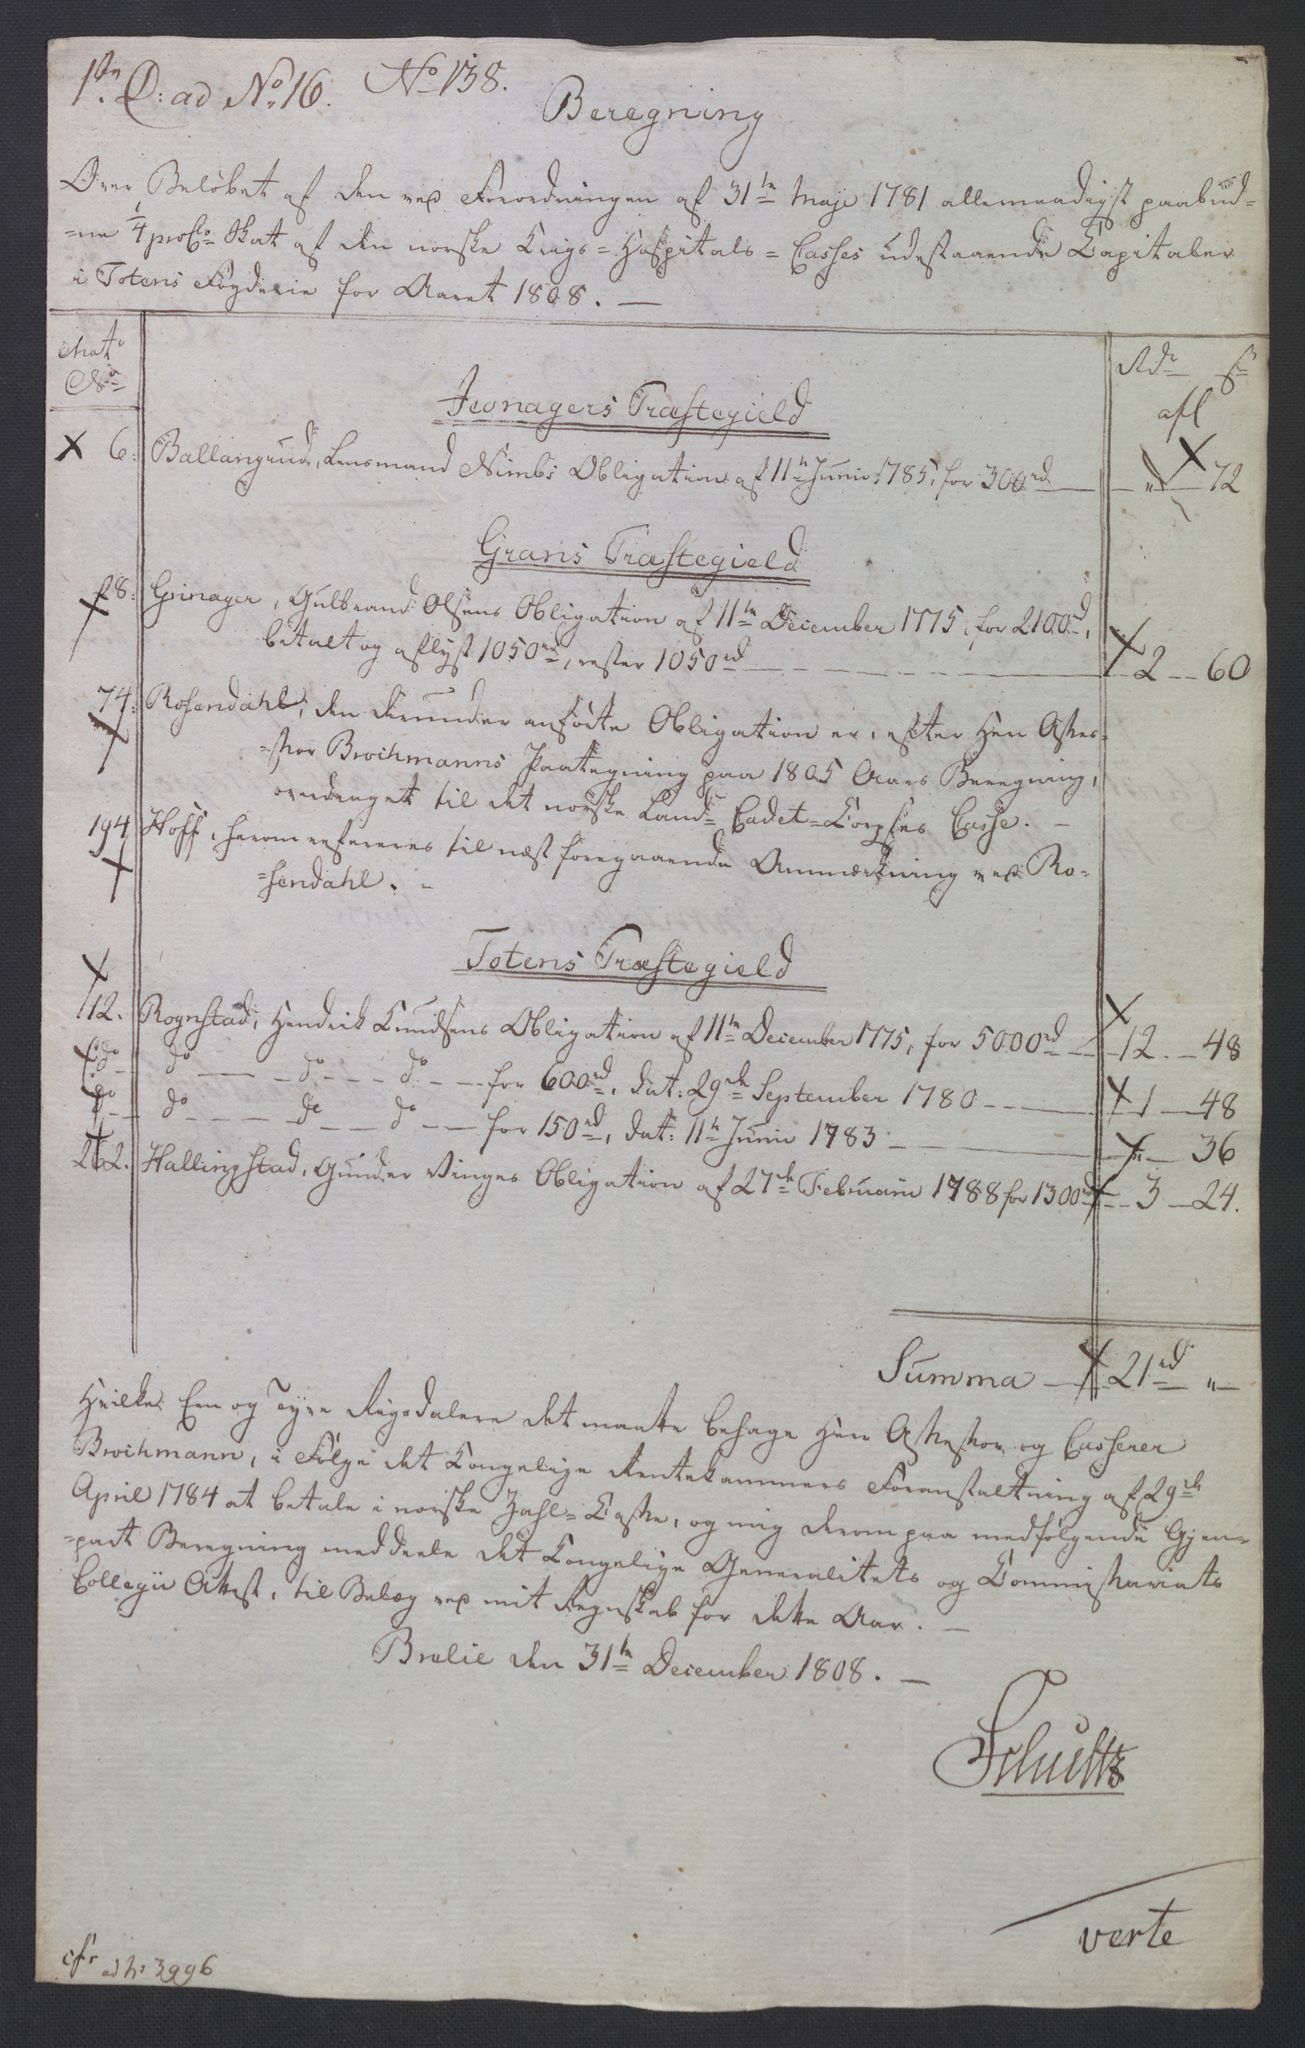 1ste Q: ad No. 16. No 138.
Beregning
Over Beløbet af den ved Forordningen af 31te Maji 1781 allernaadigst paabud-
-ne 1/4 proCto Skat af den norske Krigs-Hospitals-Casses udestaaende Capitaler
i Totens Fogderie for Aaret 1808. —
Mat. No
Rdr s
Jevnagers Præstegield
afl
6. Ballangrud, Lensmand Nimbs Obligation af 11te Junii 1785, for 300rd — " — 72
Grans Præstegield
28. Grinager, Gulbrand Olsens Obligation af 11te December 1775, for 2100rd,
betalt og aflyst 1050rd, rester 1050rd — 2 — 60
74. Rosendahl, den herunder anførte Obligation er, efter Herr Asses-
-sor Brochmanns Paategning paa 1805 Aars Beregning,
overdraget til det norske Land-Cadet-Corpses Casse. —
194 Hoff, herom refereres til næst foregaaende Anmærkning ved Ro-
-sendahl. —
Totens Præstegield
112. Rognstad, Hendrik Knudsens Obligation af 11te December 1775, for 5000rd — 12 — 48
do — do — do — do — for 600rd, dat: 29de September 1780 — 1 — 48
do — do — do — do — for 150rd, dat: 11te Junii 1783 — " — 36
262. Hallingstad, Gunder Vinges Obligation af 27de Februarii 1788 for 1300rd — 3 — 24.
Summa — 21rd "
Hvilke Een og Tyve Rigsdalere det maatte behage Herr Assessor og Casserer
Brochmann, i Følge det Kongelige Rentekammers Foranstaltning af 29de
April 1784 at betale i norske Zahl-Casse, og mig derom paa medfølgende Gjen-
-part Beregning meddeele det Kongelige Generalitets og Commissariats
Collegii Attest, til Belæg ved mit Regnskab for dette Aar. —
Brælie den 31te December 1808. —
Schultz
verte
cfr ad No 3996